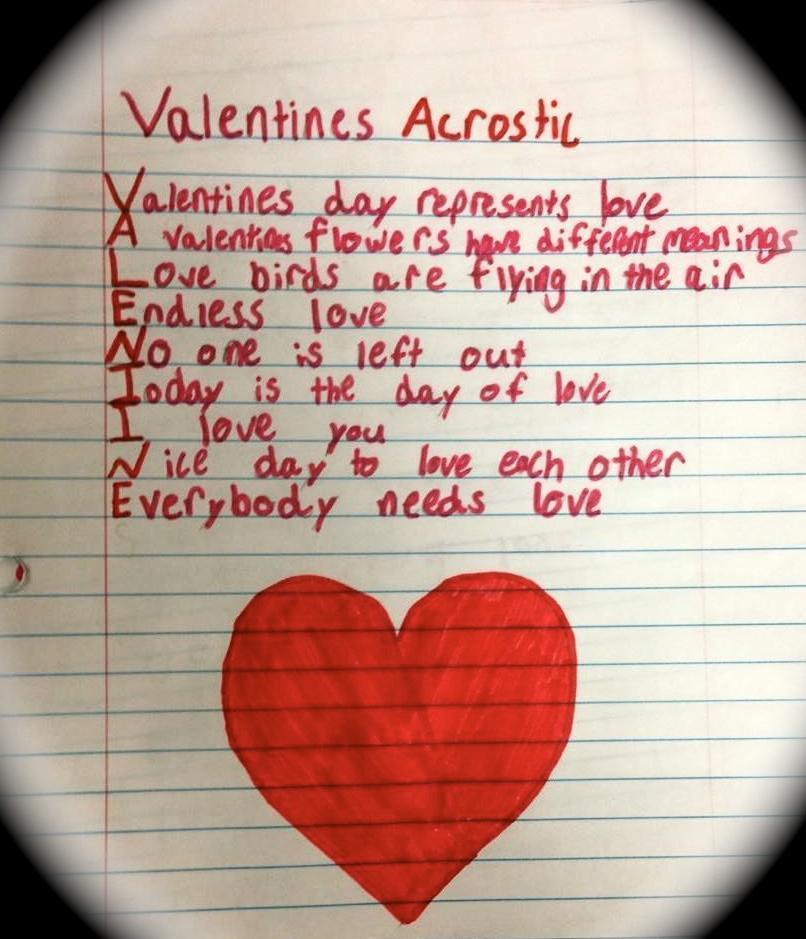 Valentines Acrostic
Valentines day represents love
A valentines flowers have different meanings
Love birds are flying in the air
Endless love
No one is left out
Today is the day of love
I love you
Nice day to love each other
Everybody needs love